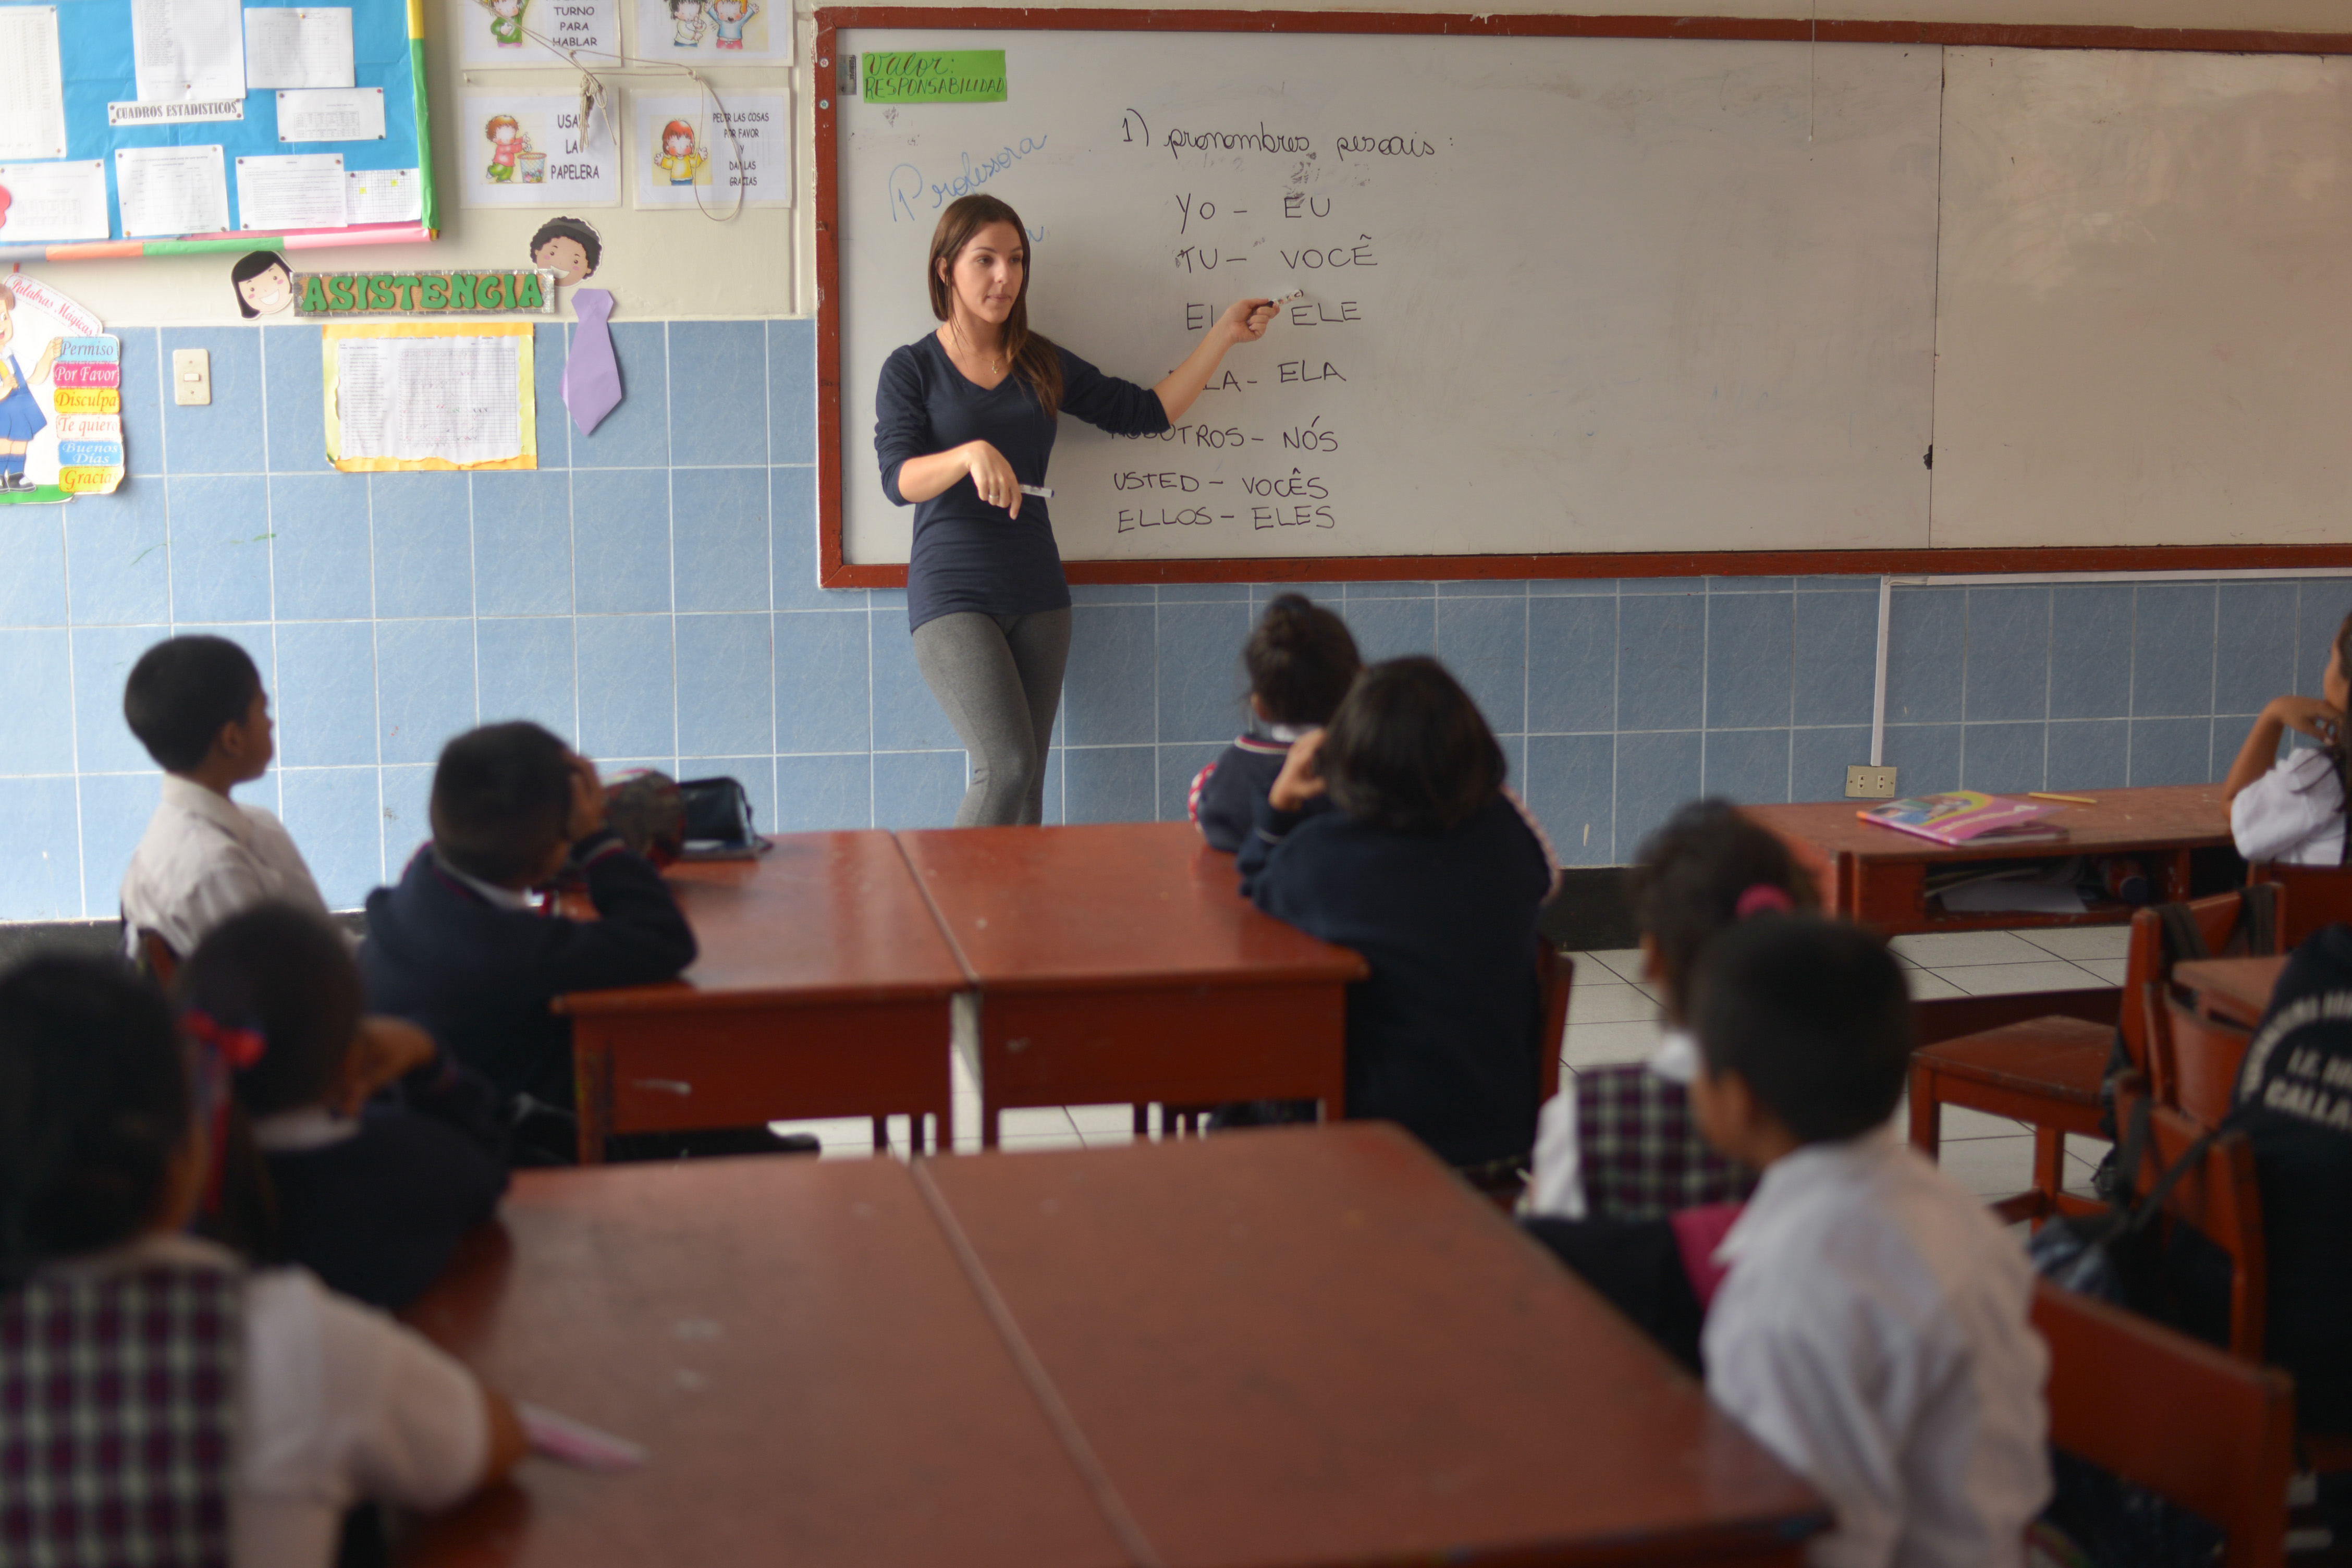 TURNO
PARA
HABLAR
CUADROS ESTADISTICOS
USA
LA
PAPELERA
PEDIR LAS COSAS
POR FAVOR
Y
DAR LAS
GRACIAS
ASISTENCIA
Palabras Mágicas
Permiso
Por Favor
Disculpa
Te quiero
Buenos
Días
Gracia
Valor:
RESPONSABILIDAD
Professora
1) pronombres pesoais:
YO - EU
TU - VOCÊ
EL ELE
LA - ELA
NOSOTROS - NÓS
USTED - VOCÊS
ELLOS - ELES
I.E.
CALLA